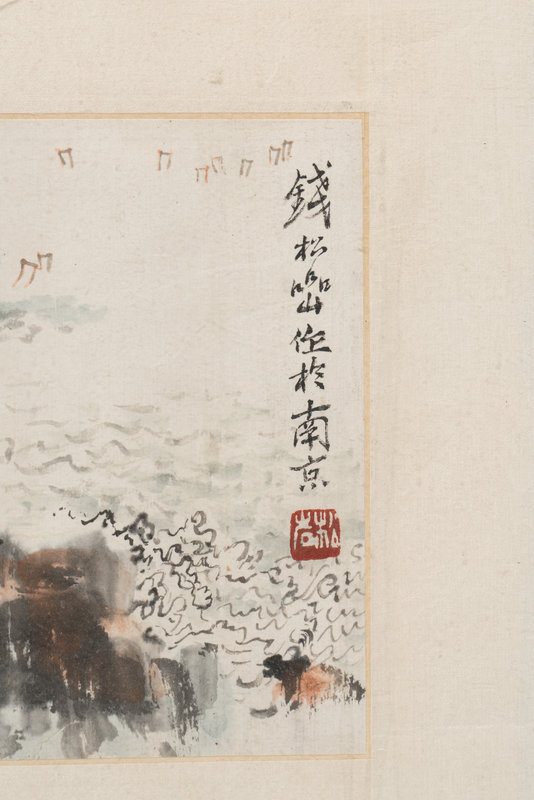 錢松喦作於南京